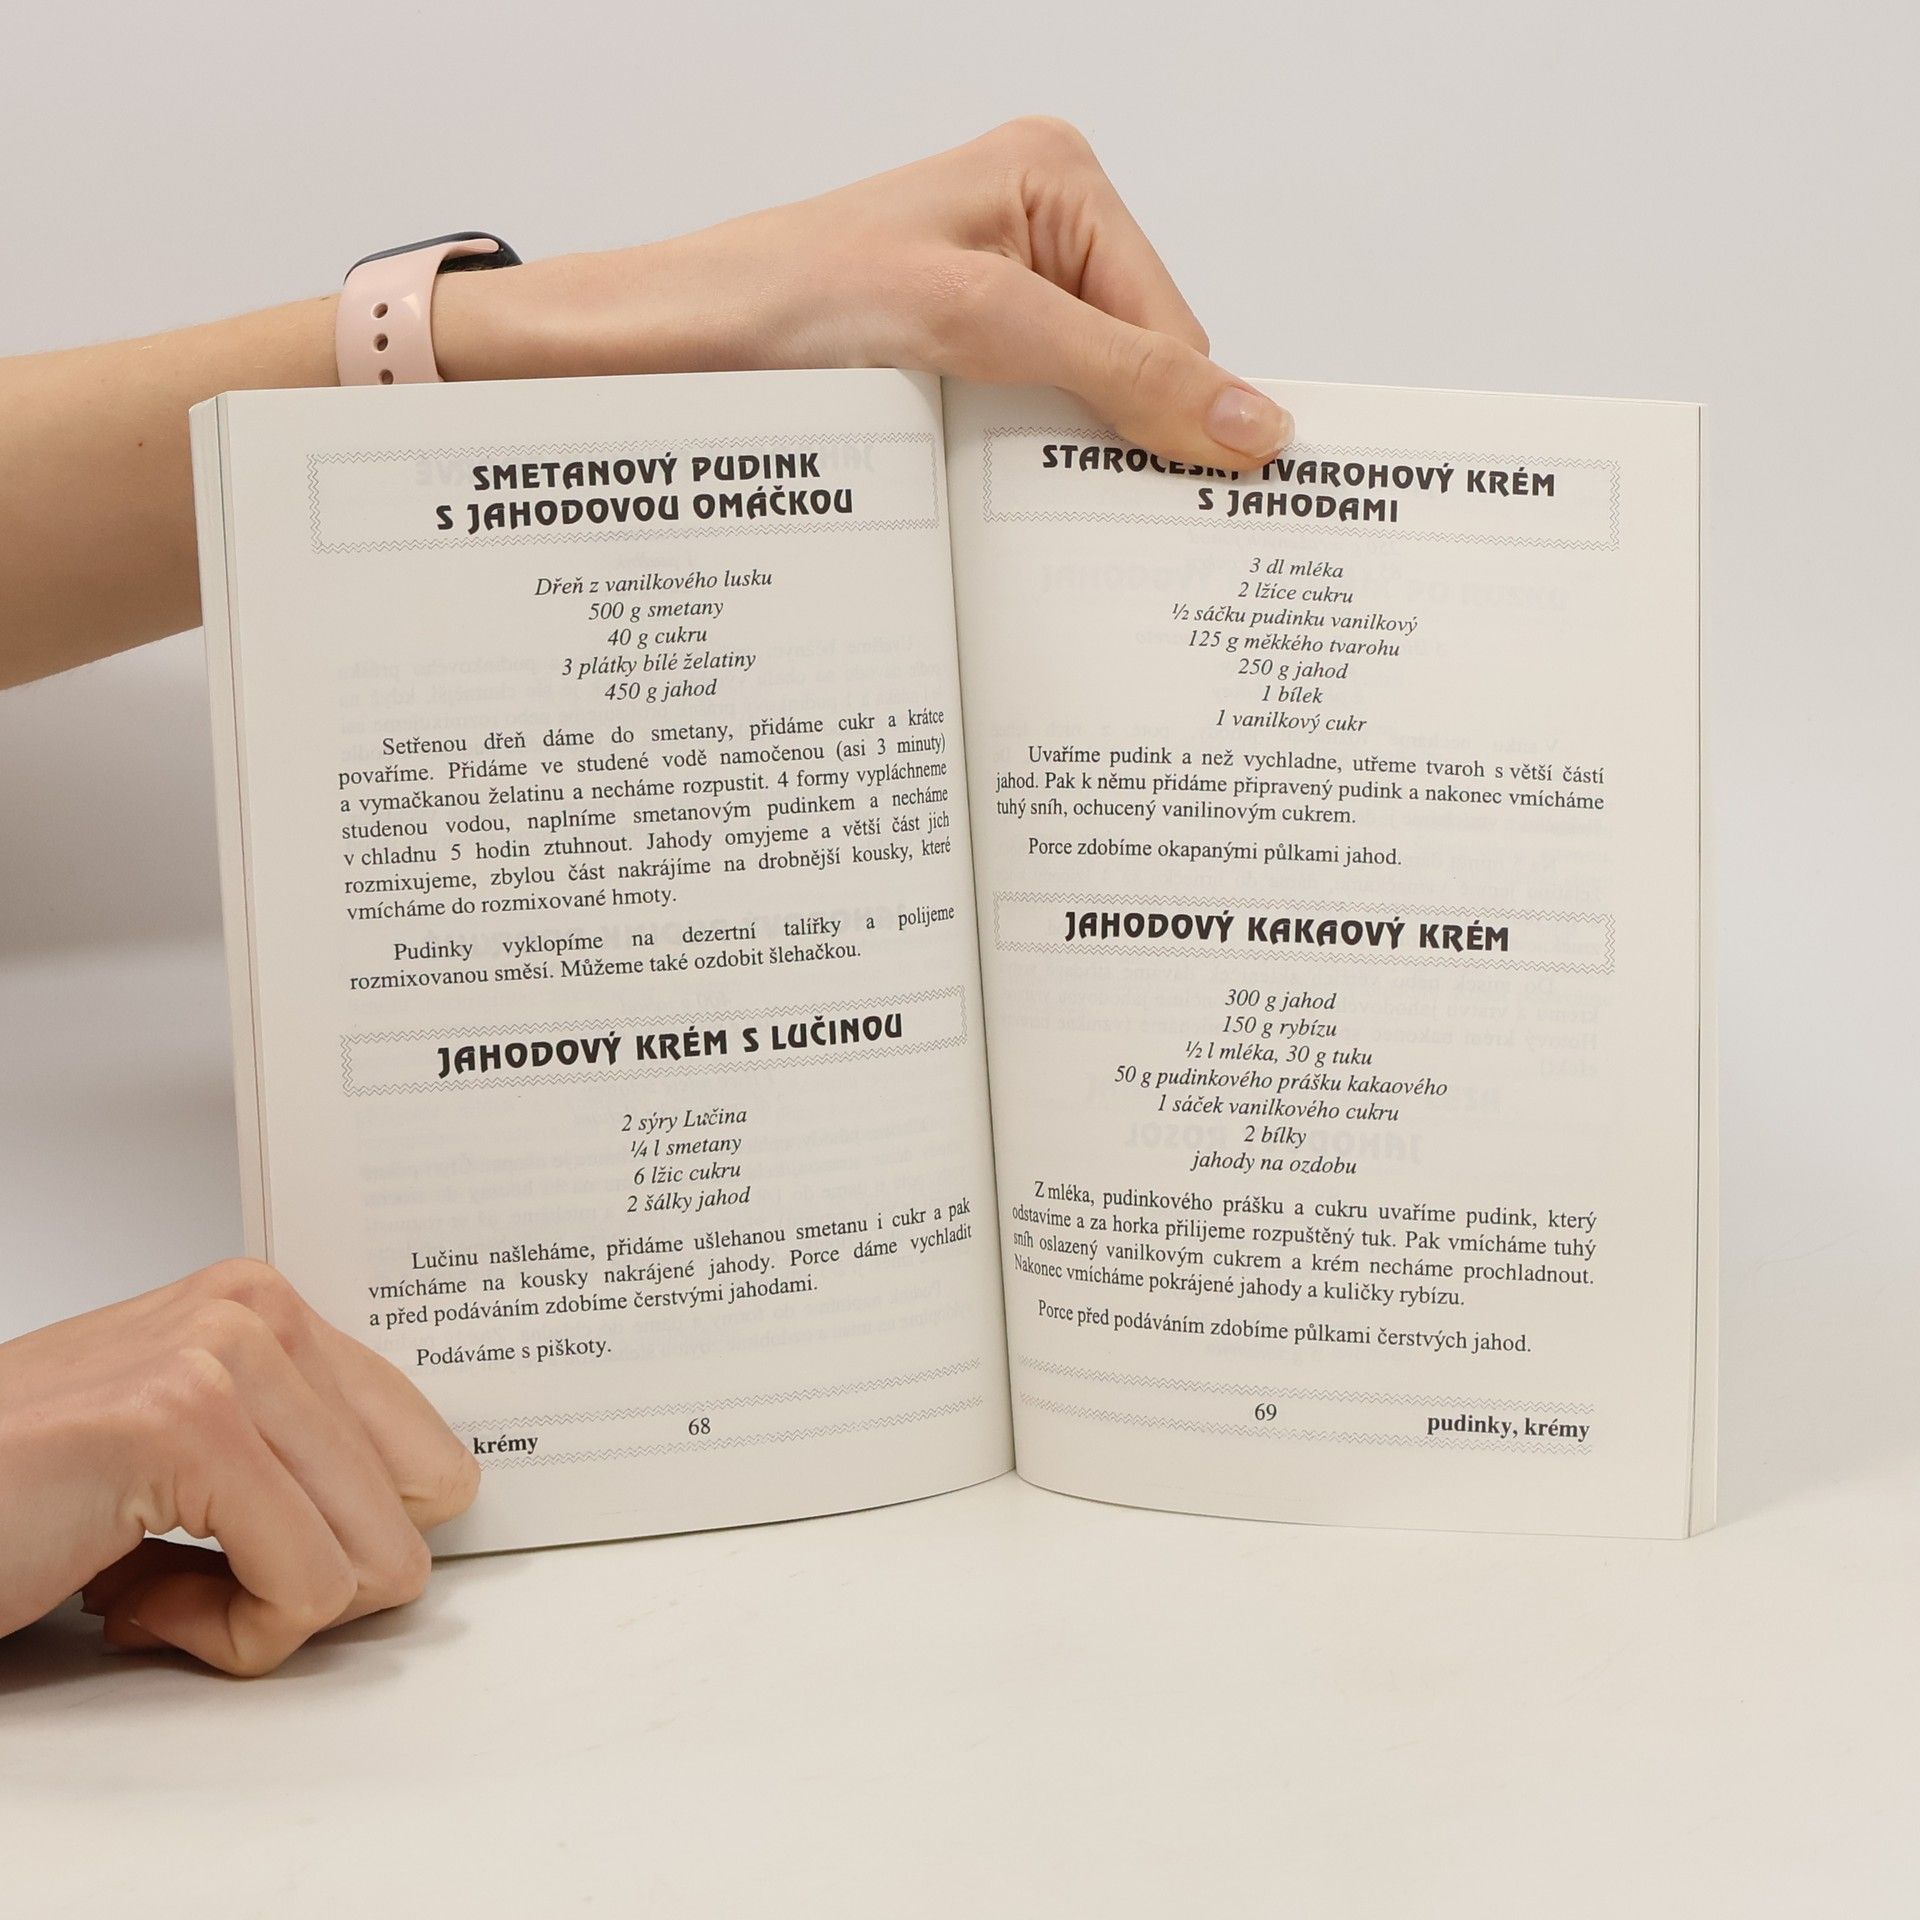 SMETANOVÝ PUDINK
S JAHODOVOU OMÁČKOU
Dřeň z vanilkového lusku
500 g smetany
40 g cukru
3 plátky bílé želatiny
450 g jahod
Setřenou dřeň dáme do smetany, přidáme cukr a krátce
povaříme. Přidáme ve studené vodě namočenou (asi 3 minuty)
a vymačkanou želatinu a necháme rozpustit. 4 formy vypláchneme
studenou vodou, naplníme smetanovým pudinkem a necháme
v chladnu 5 hodin ztuhnout. Jahody omyjeme a větší část jich
rozmixujeme, zbylou část nakrájíme na drobnější kousky, které
vmícháme do rozmixované hmoty.
Pudinky vyklopíme na dezertní talířky a polijeme
rozmixovanou směsí. Můžeme také ozdobit šlehačkou.
JAHODOVÝ KRÉM S LUČINOU
2 sýry Lučina
¼ l smetany
6 lžic cukru
2 šálky jahod
Lučinu našleháme, přidáme ušlehanou smetanu i cukr a pak
vmícháme na kousky nakrájené jahody. Porce dáme vychladit
a před podáváním zdobíme čerstvými jahodami.
Podáváme s piškoty.
krémy
68
TVAROHOVÝ KRÉM
S JAHODAMI
3 dl mléka
2 lžíce cukru
½ sáčku pudinku vanilkový
125 g měkkého tvarohu
250 g jahod
1 bílek
1 vanilkový cukr
Uvaříme pudink a než vychladne, utřeme tvaroh s větší částí
jahod. Pak k němu přidáme připravený pudink a nakonec vmícháme
tuhý sníh, ochucený vanilinovým cukrem.
Porce zdobíme okapanými půlkami jahod.
JAHODOVÝ KAKAOVÝ KRÉM
300 g jahod
150 g rybízu
½ l mléka, 30 g tuku
50 g pudinkového prášku kakaového
1 sáček vanilkového cukru
2 bílky
jahody na ozdobu
Z mléka, pudinkového prášku a cukru uvaříme pudink, který
odstavíme a za horka přilijeme rozpuštěný tuk. Pak vmícháme tuhý
sníh oslazený vanilkovým cukrem a krém necháme prochladnout.
Nakonec vmícháme pokrájené jahody a kuličky rybízu.
Porce před podáváním zdobíme půlkami čerstvých jahod.
69
pudinky, krémy